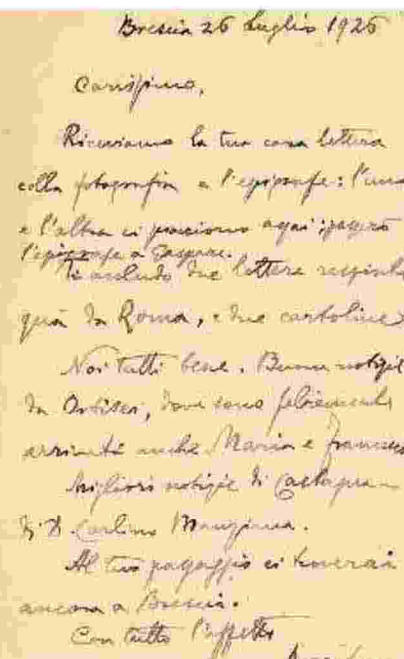 Brescia 26 Luglio 1926
Carissimo,
Riceviamo la tua cara lettera
colla fotografia e l'epigrafe: l'una
e l'altra ci piacciono assai: passerò
l'epigrafe a Gaspare.
Ti accludo due lettere respinte
quà da Roma, e due cartoline
Noi tutti bene. Buone notizie
da Ortisei, dove sono felicemente
arrivati anche Maria e Francesco
Migliori notizie di
di D. Carlino Manziana.
Al tuo passaggio ci troverai
ancora a Brescia.
Con tutto l'affetto